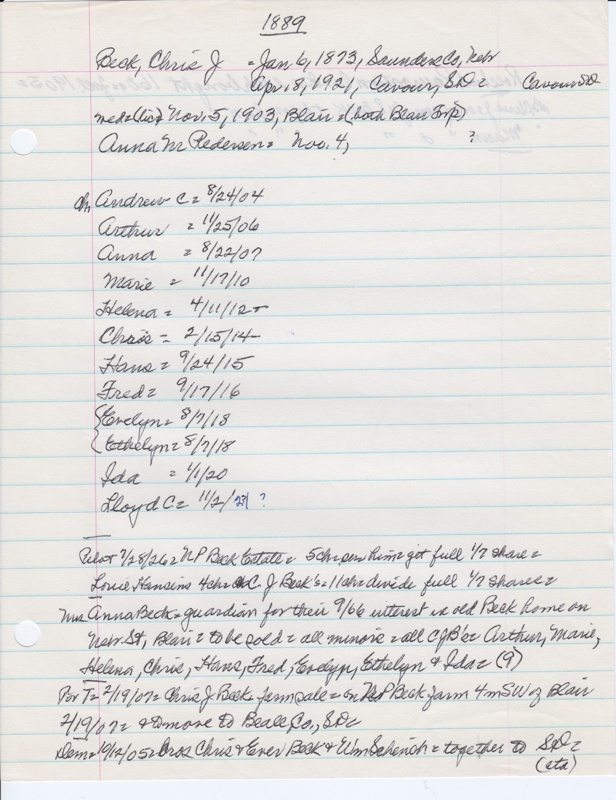 1889
Beck, Chris J = Jan 6, 1873, Saunders Co, Nebr
Apr. 8, 1921, Cavour, SD = Cavour SD
med = (lic) Nov. 5, 1903, Blair = (both Blair Twp)
Anna M Pedersen = Nov. 4, ?
ch, Andrew C = 8/24/04
Arthur = 11/25/06
Anna = 8/22/07
Marie = 11/17/10
Helena = 4/11/12
Chris = 2/15/14
Hans = 9/24/15
Fred = 9/17/16
Evelyn = 8/7/18
Ethelyn = 8/7/18
Ida = 1/1/20
Lloyd C = 11/2/21 ?
Pilot 7/28/26 = NP Beck Estate = 5 chr got full 1/7 share =
Louie Hansins 4 chr & C J Beck's = 11 chr divide full 1/7 shares =
Mrs Anna Beck = guardian for their 9/66 interest in old Beck home on
Nebr St, Blair = to be sold = all minors = all CJB's = Arthur, Marie,
Helena, Chris, Hans, Fred, Evelyn, Ethelyn & Ida = (9)
Por T = 2/19/07 = Chris J Beck = farm sale = on NP Beck farm 4 m SW of Blair
2/19/07 = & to move to Co, SD =
Dem = 10/12/05 = Bros Chris & Ever Beck & Wm = together to SD =